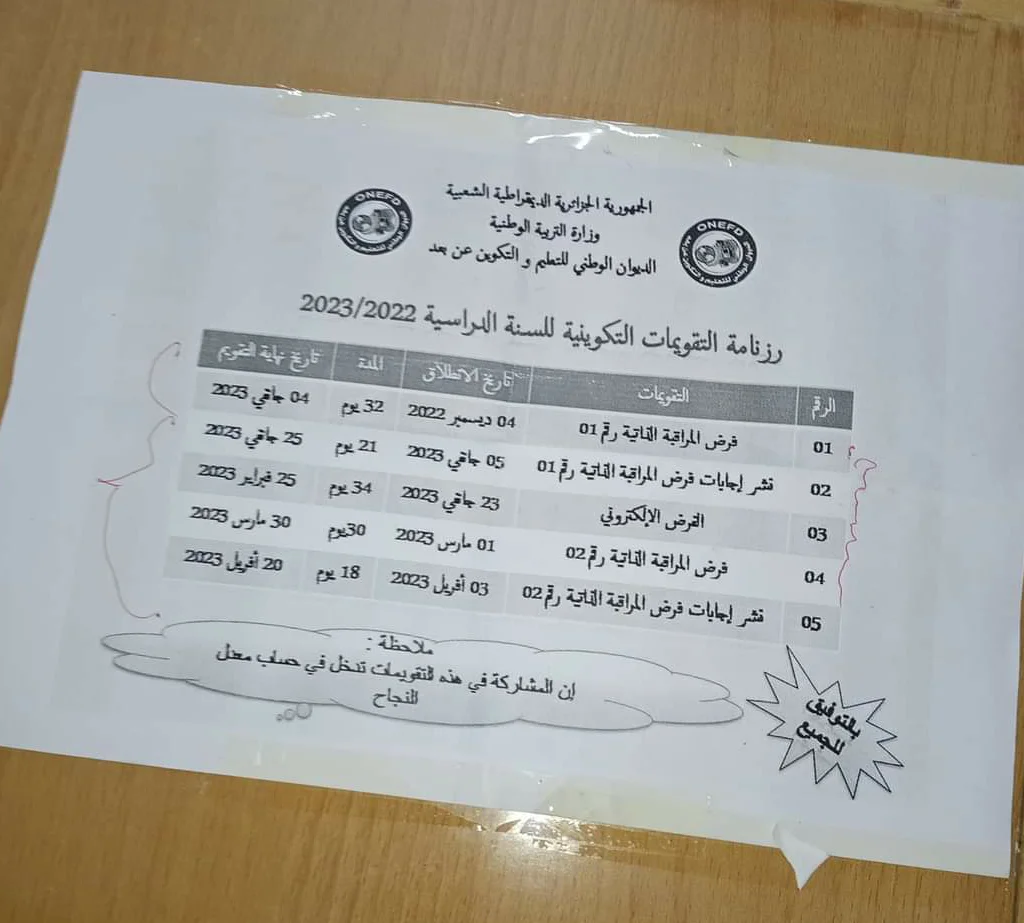 الجمهورية الجزائرية الديمقراطية الشعبية
وزارة التربية الوطنية
الديوان الوطني للتعليم و التكوين عن بعد
ONEFD
ONEFD
رزنامة التقويمات التكوينية للسنة الدراسية 2023/2022
الرقم التقويمات تاريخ الانطلاق المدة تاريخ نهاية التقويم
01 فرض المراقبة الذاتية رقم 01 04 ديسمبر 2022 32 يوم 04 جانفي 2023
02 نشر إجابات فرض المراقبة الذاتية رقم 01 05 جانفي 2023 21 يوم 25 جانفي 2023
03 الفرض الإلكتروني 23 جانفي 2023 34 يوم 25 فبراير 2023
04 فرض المراقبة الذاتية رقم 02 01 مارس 2023 30يوم 30 مارس 2023
05 نشر إجابات فرض المراقبة الذاتية رقم 02 03 أفريل 2023 18 يوم 20 أفريل 2023
ملاحظة :
إن المشاركة في هذه التقويمات تدخل في حساب معدل
النجاح
بالتوفيق
للجميع